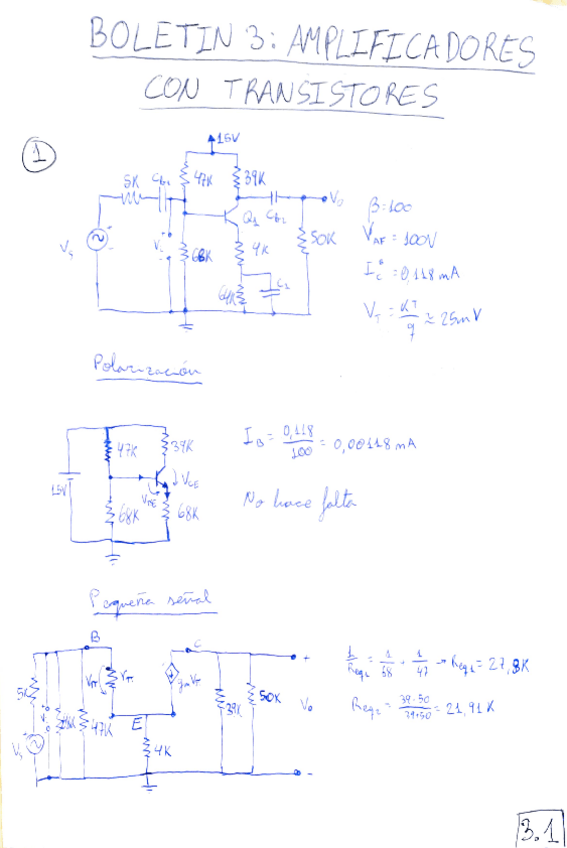 BOLETIN 3: AMPLIFICADORES
CON TRANSISTORES
1
15V
5K
47K
39K
Vo
Q1
50K
Vs
68K
4K
64K
β=100
VAF = 100V
Ic* = 0,118 mA
VT = KT/q ≃ 25mV
Polarización
47K
39K
VCE
15V
68K
68K
IB = 0,118/100 = 0,00118 mA
No hace falta
Pequeña señal
B
C
+
5K
Vπ
rπ
gmVπ
47K
E
39K
50K
Vo
Vs
4K
-
1/Req1 = 1/68 + 1/47 → Req1 = 27,8K
Req2 = 39·50/39+50 = 21,91 K
3.1